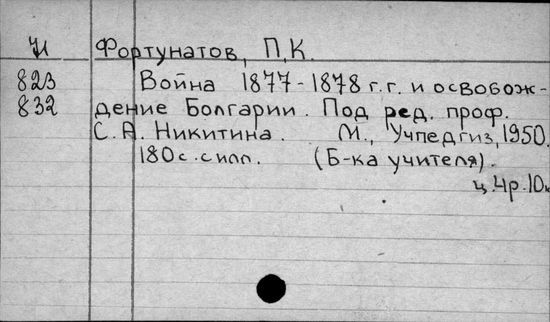 Ч Фортунатов, П.К.
823 Война 1877-1878 г.г. и освобож-
832 дение Болгарии. Под ред. проф.
С.А. Никитина. М., Учпедгиз, 1950.
180с. с илл. (Б-ка учителя).
ц. 4р. 10к